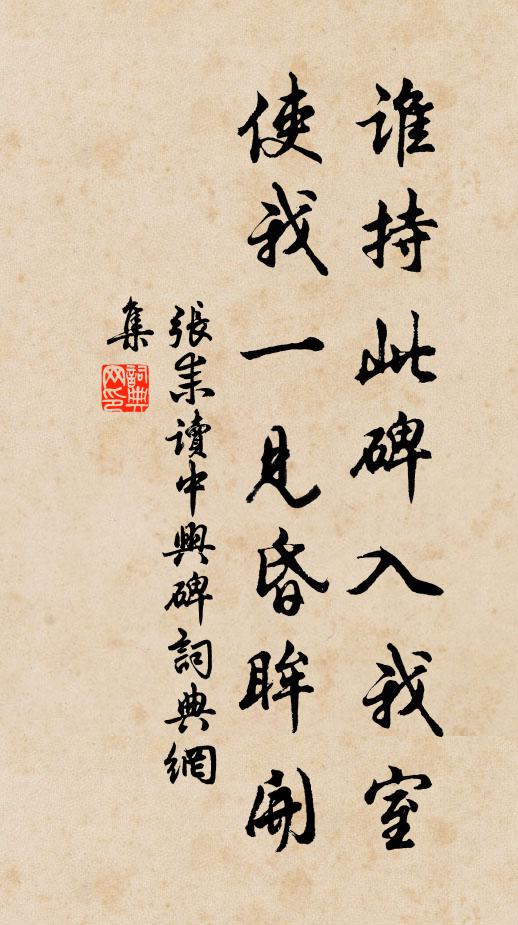 誰持此碑入我室
使我一見昏眸開
張耒讀中興碑詞典網
集
詞典網印